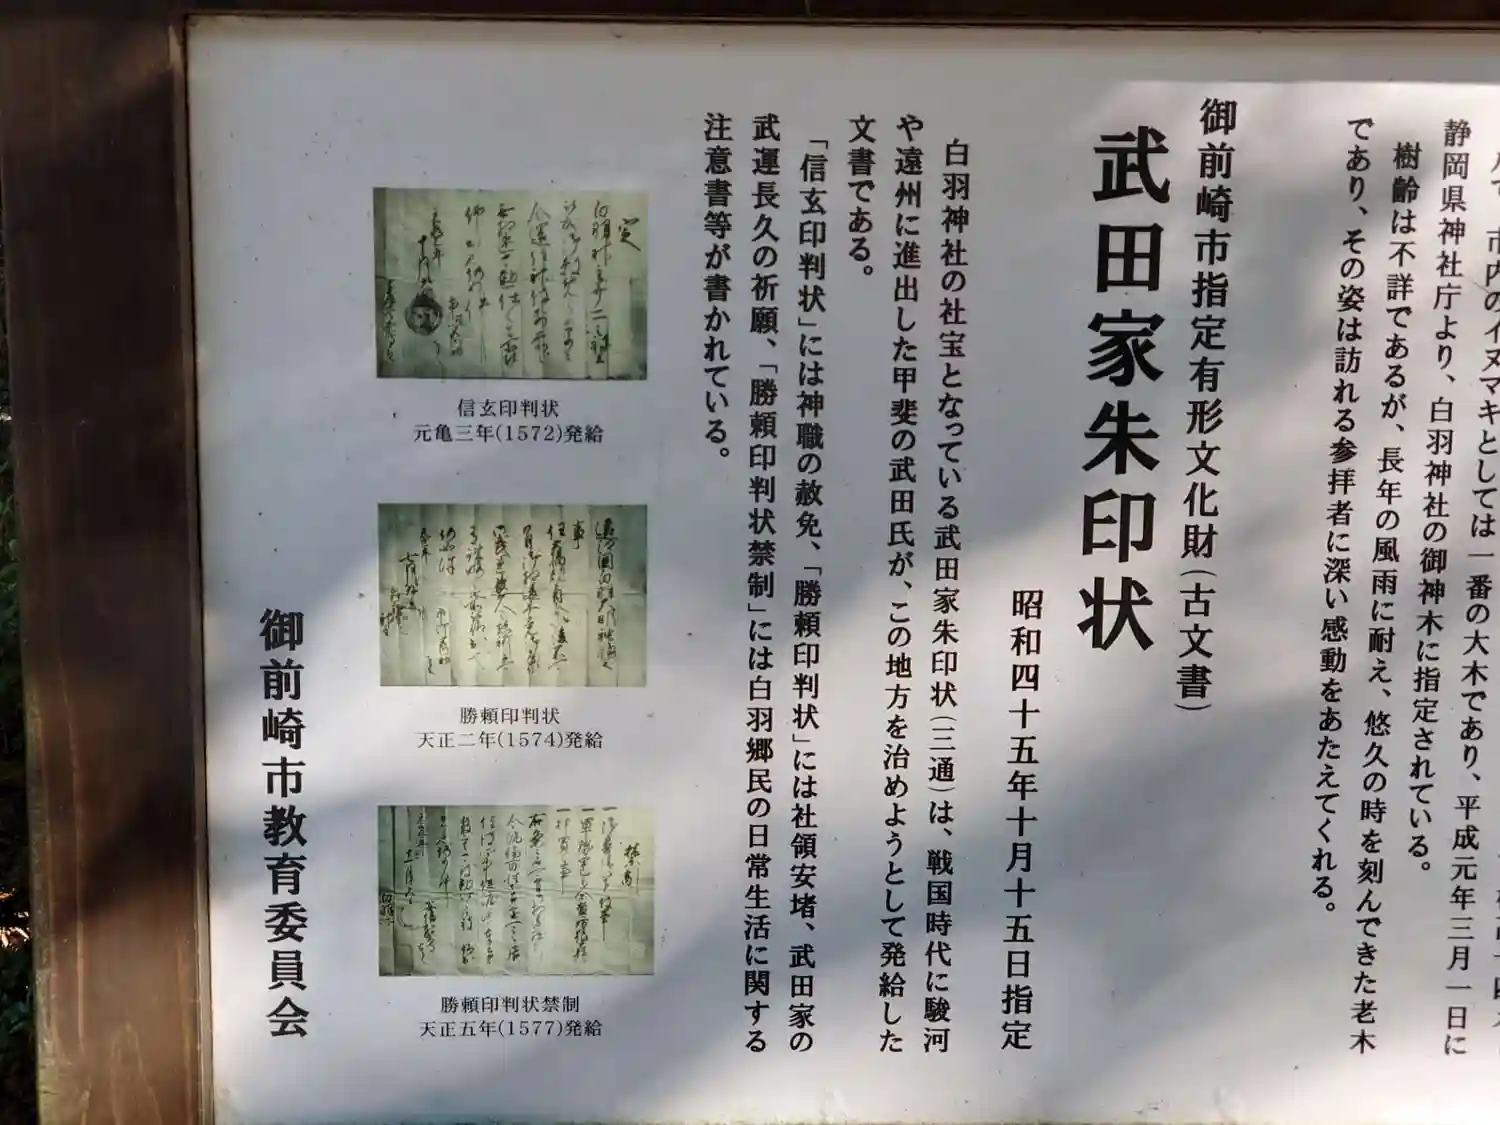 市内のイヌマキとしては一番の大木であり、平成元年三月一日に
静岡県神社庁より、白羽神社の御神木に指定されている。
樹齢は不詳であるが、長年の風雨に耐え、悠久の時を刻んできた老木
であり、その姿は訪れる参拝者に深い感動をあたえてくれる。
御前崎市指定有形文化財(古文書)
武田家朱印状
昭和四十五年十月十五日指定
白羽神社の社宝となっている武田家朱印状(三通)は、戦国時代に駿河
や遠州に進出した甲斐の武田氏が、この地方を治めようとして発給した
文書である。
「信玄印判状」には神職の赦免、「勝頼印判状」には社領安堵、武田家の
武運長久の祈願、「勝頼印判状禁制」には白羽郷民の日常生活に関する
注意書等が書かれている。
信玄印判状
元亀三年(1572)発給
勝頼印判状
天正二年(1574)発給
勝頼印判状禁制
天正五年(1577)発給
御前崎市教育委員会